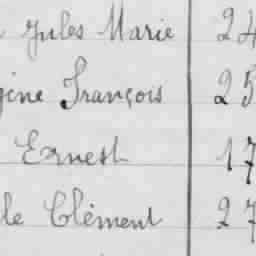 Jules Marie 24
gine François 25
Ernest 17
le Clément 27